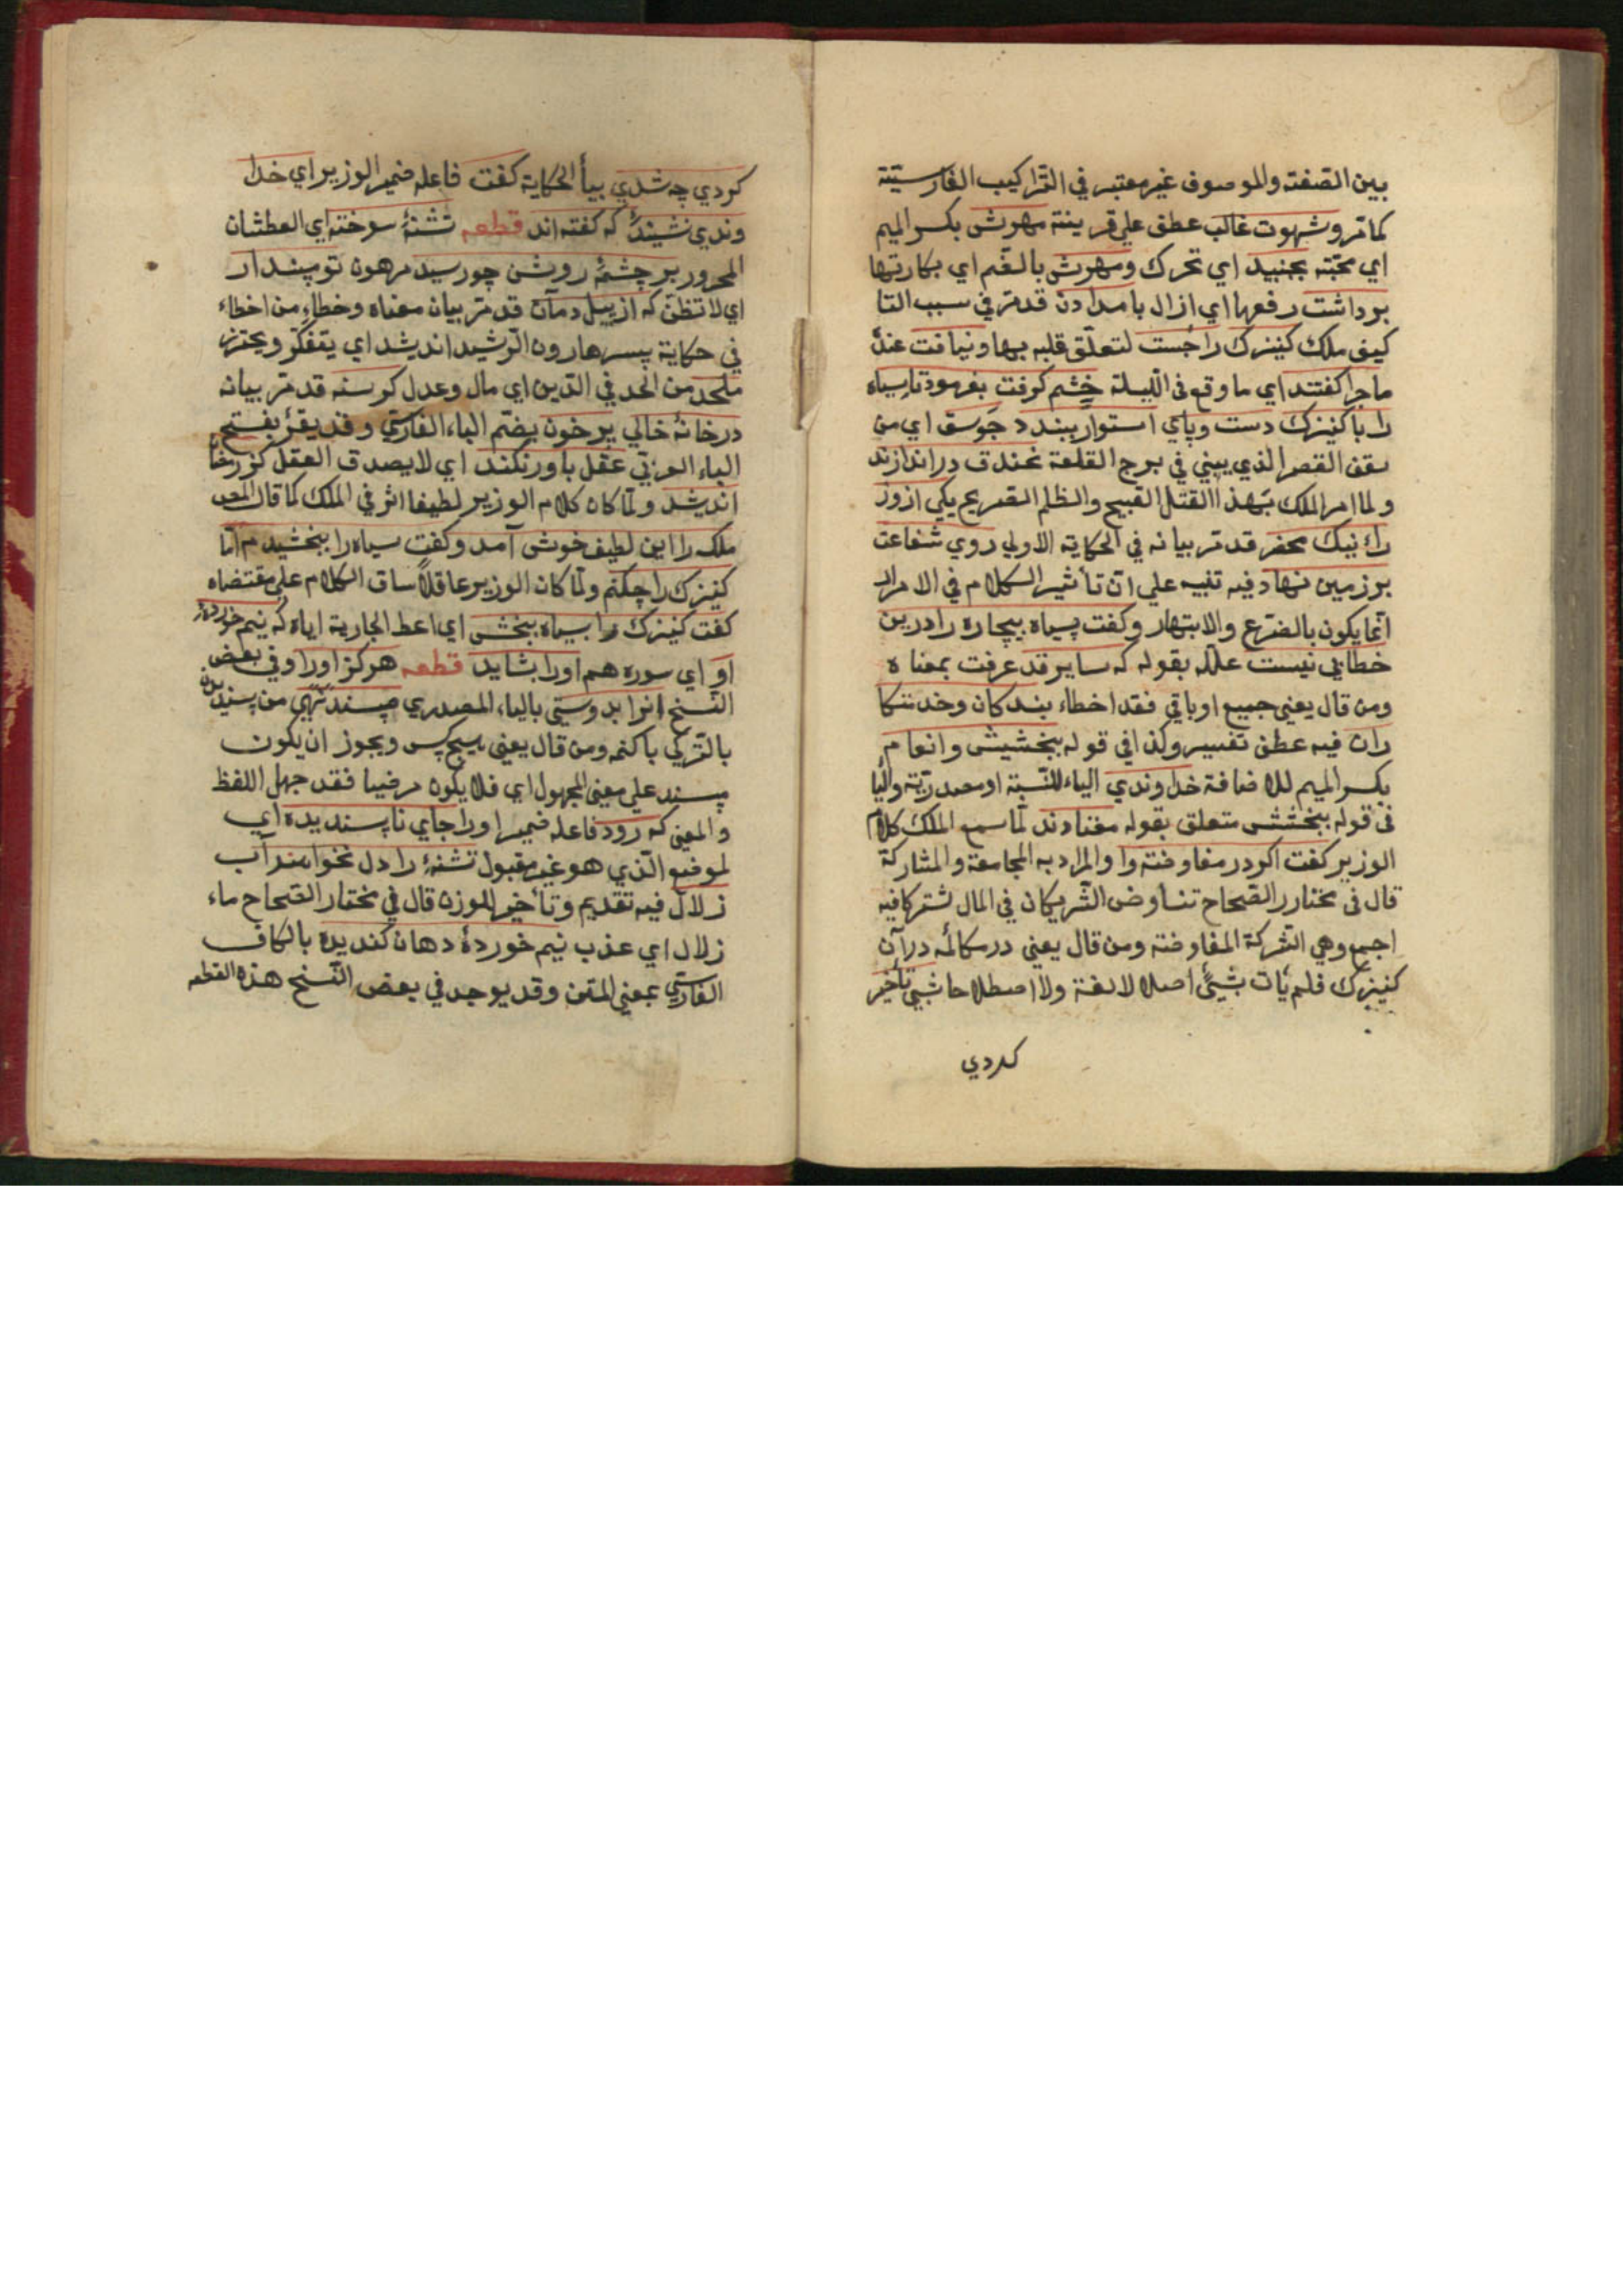 بين الصفة والموصوف غير معتبر في التراكيب الفارسية
كما مرّ وشهوت غالب عطف علي قرينة مهرش بكسر الميم
اي محبته بجنبيد اي تحرك ومهرش بالضم اي بكارتها
برداشت رفعها اي ازال بامدادن قد مرّ في سبب التا
ليف ملك كنيزك را جست لتعلق قلبه بها ونيافت عند
ماجرا كفتند اي ما وقع في الليلة خشم كرفت بفرمود تا سياه
را با كنيزك دست وپاي استوار ببندد جوسق اي من
سقف القصر الذي يبني في برج القلعة بخندق دراندازند
ولما امر الملك بهذا القتل القبيح والظلم الصريح يكي ازوز
راء نيك محضر قد مرّ بيانه في الحكاية الاولي روي شفاعت
برزمين نهاد فيه تنبيه علي ان تأثير الكلام في الامراء
انما يكون بالتضرع والابتهار وكفت سياه بيچاره را درين
خطايي نيست علله بقوله كه ساير قد عرفت معناه
ومن قال يعني جميع اوباقي فقد اخطاء بندكان وخدمتكا
ران فيه عطف تفسير وكذا في قوله ببخشش وانعام
بكسر الميم للاضافة خداوندي الياء للنسبة او مصدرية والبا
في قوله ببخشش متعلق بقوله معتادند لما سمع الملك كلام
الوزير كفت اكر در مفاوضت او والمراد به المجامعة والمشاركة
قال في مختار الصحاح تفاوض الشريكان في المال اشتركا فيه
اجمع وهي الشركة المفاوضة ومن قال يعني در مكالمه درآن
كنيزك فلم يأت بشيئ اصلا لا لغة ولا اصطلاحا شبي تأخير
كردي
كردي چه شدي بيأ الحكاية كفت فاعله ضمير الوزير اي خدا
وندي نشنيدۀ كه كفته اند قطعه تشنۀ سوخته اي العطشان
المحرور بر چشمۀ روشن چو رسيد مرهون تو مپندار
اي لا تظن كه از پيل دمان قد مرّ بيان معناه وخطاء من اخطاء
في حكاية پسر هارون الرشيد انديشد اي يتفكر ويحترز
ملحد من الحد في الدين اي مال وعدل كرسنه قد مرّ بيانه
در خانۀ خالي پر خون بضم الباء الفارسي وقد يقرء بفتح
الباء العربي عقل باور نكند اي لا يصدق العقل كز رمضان
انديشد ولما كان كلام الوزير لطيفا اثر في الملك كما قال المص
ملك را اين لطيفه خوش آمد وكفت سياه را ببخشيدم اما
كنيزك را چكنم ولما كان الوزير عاقلا ساق الكلام علي مقتضاه
كفت كنيزك را بسياه ببخش اي اعط الجارية اياه كه نيم خوردۀ
او اي سوره هم اورا بشايد قطعه هركز اورا وفي بعض
النسخ انرا بدوستي بالياء المصدري مپسند نهي من پسنديدن
بالتركي باكنمه ومن قال يعني هيچ كس ويجوز ان يكون
پسند علي معني المجهول اي فلا يكون مرضيا فقد جهل اللفظ
والمعني كه رود فاعله ضمير اورا جاي ناپسنديده اي
لموضع الذي هو غير مقبول تشنۀ را دل نخواهد آب
زلال فيه تقديم وتأخير للوزن قال في مختار الصحاح ماء
زلال اي عذب نيم خوردۀ دهان كنديده بالكاف
الفارسي بمعني المنتن وقد يوجد في بعض النسخ هذه القطعه